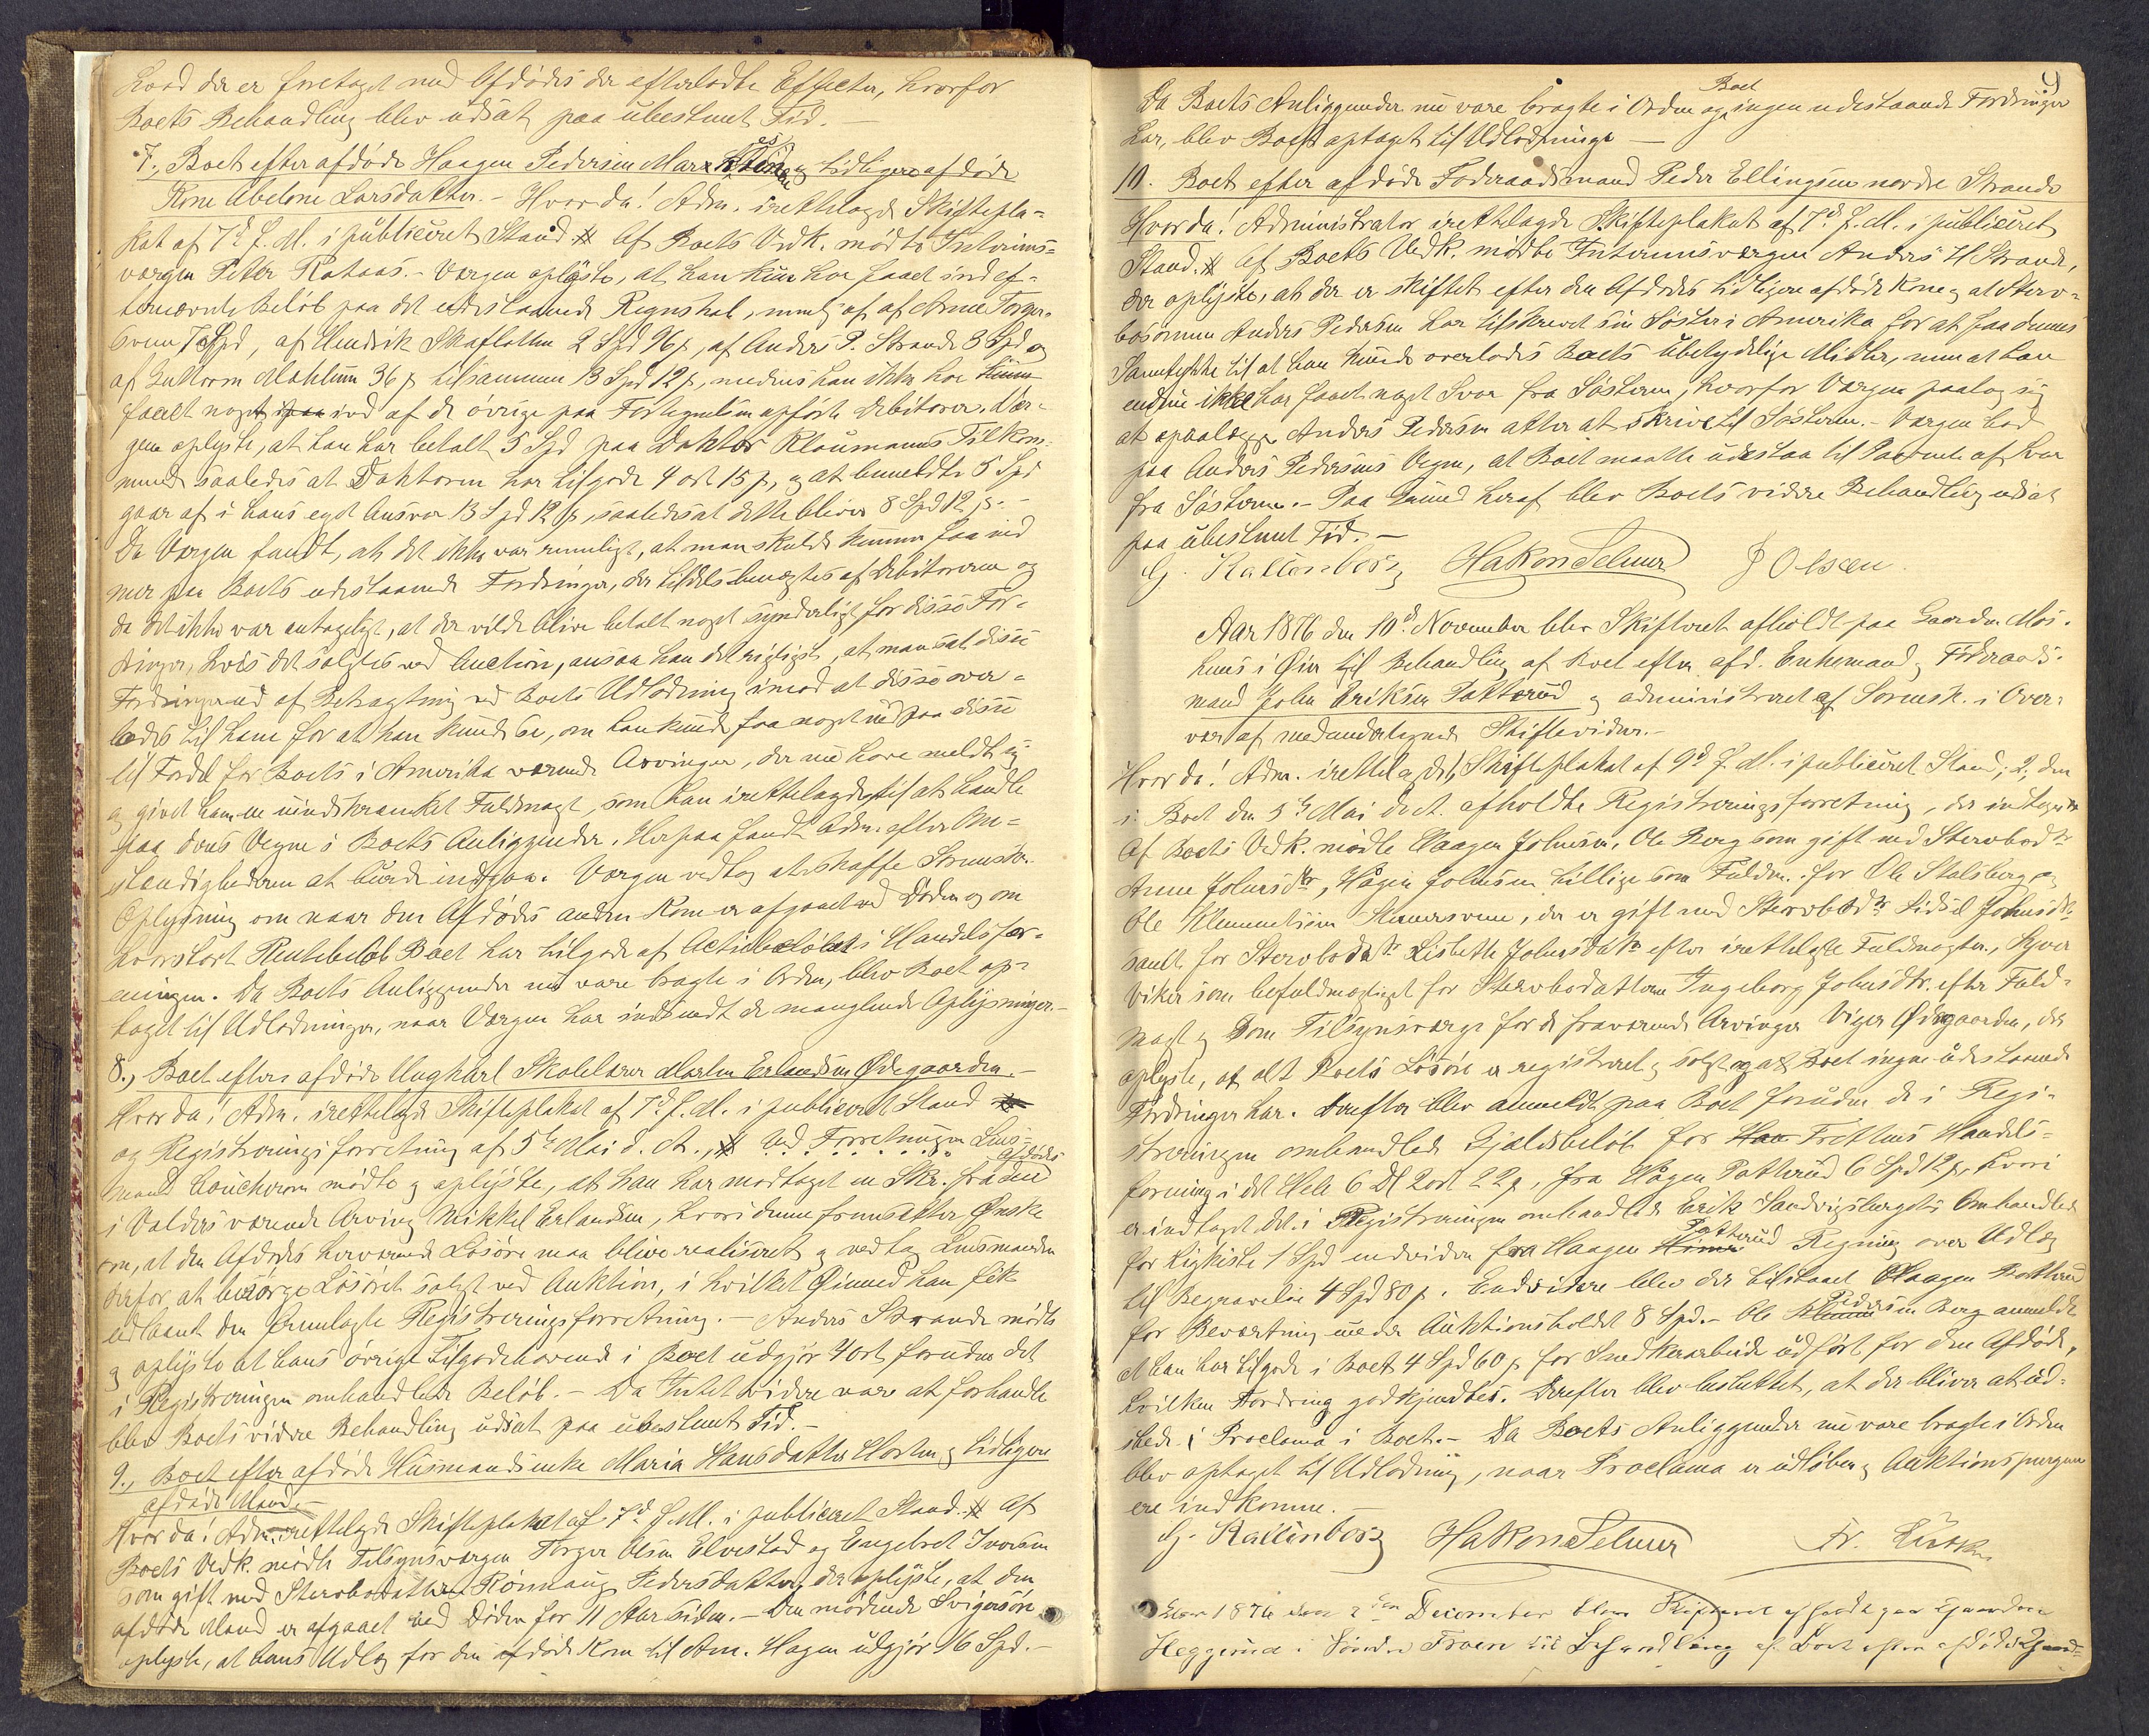 hvad der er foretaget med Afdødes der efterladte Effecter, hvorfor
Boets Behandling blev udsat paa ubestemt Tid. –
7., Boet efter afdøde Haagen Pedersen og tidligere afdøde
Kone Abelone Larsdatter. – Hvor da! Adm. irettelagde Skiftepla=
kat af 7d f. M. i publiceret Stand. Af Boets Vedk. mødte Interims=
værgen Peter Rataas. – Værgen oplyste, at han kun har faaet ind ef=
ternævnte Beløb paa det udestaaende Regnskab, nemlig af Arne Torger=
sveen 7 Spd, af Hendrik Skaflotten 2 Spd 96 s, af Anders P. Strande 3 Spd og
af Guttorm Mæhlum 36 s tilsammen 13 Spd 12 s, medens han ikke har kunne
faaet noget ind af de øvrige paa Fortegnelsen opførte Debitorer. Vær=
gen oplyste, at han har betalt 5 Spd paa Doktor Klaumanns Tilkom=
mende saaledes at Doktoren har tilgode 4 ort 15 s, og at bemeldte 5 Spd
gaar af i hans eget Ansvar 13 Spd 12 s, saaledes at dette bliver 8 Spd 12 s. –
Da Værgen fandt, at det ikke var rimeligt, at man skulde kunne faa ind
mer paa Boets udestaaende Fordringer, der tildels benægtes af Debitorerne og
da det ikke var antageligt, at der vilde blive betalt noget synderligt for disse For=
dringer, hvis det solgtes ved Auction, ansaa han det rigtigst, at man sat disse
Fordringer ud af Betragtning ved Boets Udlodning imod at disse over=
lodes til ham for at han kunde se, om han kunde faa noget ind paa disse
til Fordel for Boets i Amerika værende Arvinger, der nu have meldt sig
og givet ham en uindskrænket Fuldmagt, som han irettelagde, til at handle
paa deres Vegne i Boets Anliggender. Herpaa fandt Adm. efter Om=
stændighederne at burde indgaa. Værgen vedtog at skaffe Sorensk.
Oplysning om naar den Afdødes anden Kone er afgaaet ved Døden og om
hvorstort Rentebeløb Boet har tilgode af Actiebeløbet i Handelsfor=
eningen. Da Boets Anliggender nu vare bragte i Orden, blev Boet op=
taget til Udlodninger, naar Værgen har indsendt de manglende Oplysninger. –
8., Boet efter afdøde Ungkarl Skolelærer Martin Erlandsen Ødegaarden. –
Hvor da! Adm. irettelagde Skifteplakat af 7d f. M. i publiceret Stand
og Registreringsforretning af 5te Mai d. A., Ved Forretningen Lens=
mand Loucheron mødte og oplyste, at han har modtaget en Skr. fra den Afdødes
i Valders værende Arving Mikkel Erlandsen, hvori denne fremsætter Ønske
om, at den Afdødes herværende Løsøre maa blive realiseret og vedtog Lensmanden
derfor at besørge Løsøret solgt ved Auktion, i hvilket Øiemed han fik
udlaant den fremlagte Registreringsforretning. – Anders Strande mødte
og oplyste at hans øvrige Tilgodehavende i Boet udgjør 4 ort, foruden det
i Registreringen omhandlede Beløb. – Da Intet videre var at forhandle
blev Boets videre Behandling udsat paa ubestemt Tid. –
9., Boet efter afdøde Husmandsenke Maria Hansdatter Horten og tidligere
afdøde Mand. –
Hvor da! Adm. irettelagde Skifteplakat af 7d f. M. i publiceret Stand. Af
Boets Vedk. mødte Tilsynsværgen Torger Olsen Elvestad og Engebret Iversen
som gift med Stervbodatter Rønnaug Pedersdatter, der oplyste, at den
afdøde Mand er afgaaet ved Døden for 11 Aar siden. – Den mødende Svigersøn
oplyste, at hans Udlæg for den afdøde Kone til Adm. Hagen udgjør 16 Spd. –
9
Da Boets Anliggender nu vare bragte i Orden og Boet ingen udestaaende Fordringer
har, blev Boet optaget til Udlodninger –
10. Boet efter afdøde Føderaadsmand Peder Ellingsen nordre Strande
Hvor da! Administrator irettelagde Skifteplakat af 7d f. M. i publiceret
Stand. Af Boets Vedk. mødte Interimsværgen Anders H Strande,
der oplyste, at der er skiftet efter den Afdødes tidligere afdøde Kone og at Sterv=
bosønnen Anders Pedersen har tilskrevet sin Søster i Amerika for at faa dennes
Samtykke til at han kunde overlades Boets ubetydelige Midler, men at han
endnu ikke har faaet noget Svar fra Søsteren, hvorfor Værgen paatog sig
at paalægge Anders Pedersen atter at skrive til Søsteren. – Værgen bad
paa Anders Pedersens Vegne, at Boet maatte udestaa til Indkomst af Svar
fra Søsteren. – Paa Grund heraf blev Boets videre Behandling udsat
paa ubestemt Tid. –
G. Kallenborg Hakon Selmer J Olsen
Aar 1876 den 10d. November blev Skifteret afholdt paa Gaarden Mos=
huus i Øier til Behandling af Boet efter afd. Enkemand og Føderaads=
mand John Eriksen Pottorud og administreret af Sorensk. i Over=
vær af medundertegnede Skiftevidner. –
Hvor da! Adm. irettelagde 1, Skifteplakat af 9d f. M. i publiceret Stand; 2, den
i Boet den 5te Mai d. A. afholdte Registreringsforretning, der indtages
Af Boets Vedk. mødte Haagen Johnsen, Ole Berg som gift med Stervbodtr
Anne Johnsdtr, Hågen Johnsen tillige som Fuldm. for Ole Stalsberg og
Ole Klemmetsen, der er gift med Stervbodtr Sidsel Johnsdtr,
samt for Stervbodatr Lisbeth Johnsdatr efter irettelagte Fuldmagter, Syver
Viker som befuldmægtiget for Stervbodatteren Ingeborg Johnsdtr. efter Fuld=
magt og som Tilsynsværge for de fraværende Arvinger Viger Ødegaarden, der
oplyste, at alt Boets Løsøre er registreret og solgt og at Boet ingen udestaaende
Fordringer har. Derefter blev anmeldt paa Boet foruden de i Regi=
streringen omhandlede Gjældsbeløb for Frettens Handels=
forening i det Hele 6 Dl 2 ort 22 s, fra Hågen Pottrud 6 Spd 12 s, hvori
er indtaget det i Registreringen omhandlede Erik Sandvigsbergets Omhandlede
for Ligkiste 1 Spd endvidere fra Haagen Pottrud Regning over Udlæg
til Begravelse 4 Spd 80 s. Endvidere blev der tilstaaet Haagen Pottrud
for Beværtning under Auktionsholdet 8 Spd. – Ole Pedersen Berg anmeldte
at han har tilgode i Boet 4 Spd 60 s for Snedkerarbeide udført for den Afdøde,
hvilken Fordring godkjendtes. Derefter blev besluttet, at der bliver at ud=
stede Proclama i Boet. – Da Boets Anliggender nu vare bragte i Orden
blev optaget til Udlodning, naar Proclama er udløben og Auktionspengene
ere indkomne. –
G. Kallenborg Hakon Selmer Fr. Lütken
Aar 1876 den 2den December blev Skifteret afholdt paa Gaarden
Heggerud i Søndre Froen til Behandling af Boet efter afdøde Gaard=